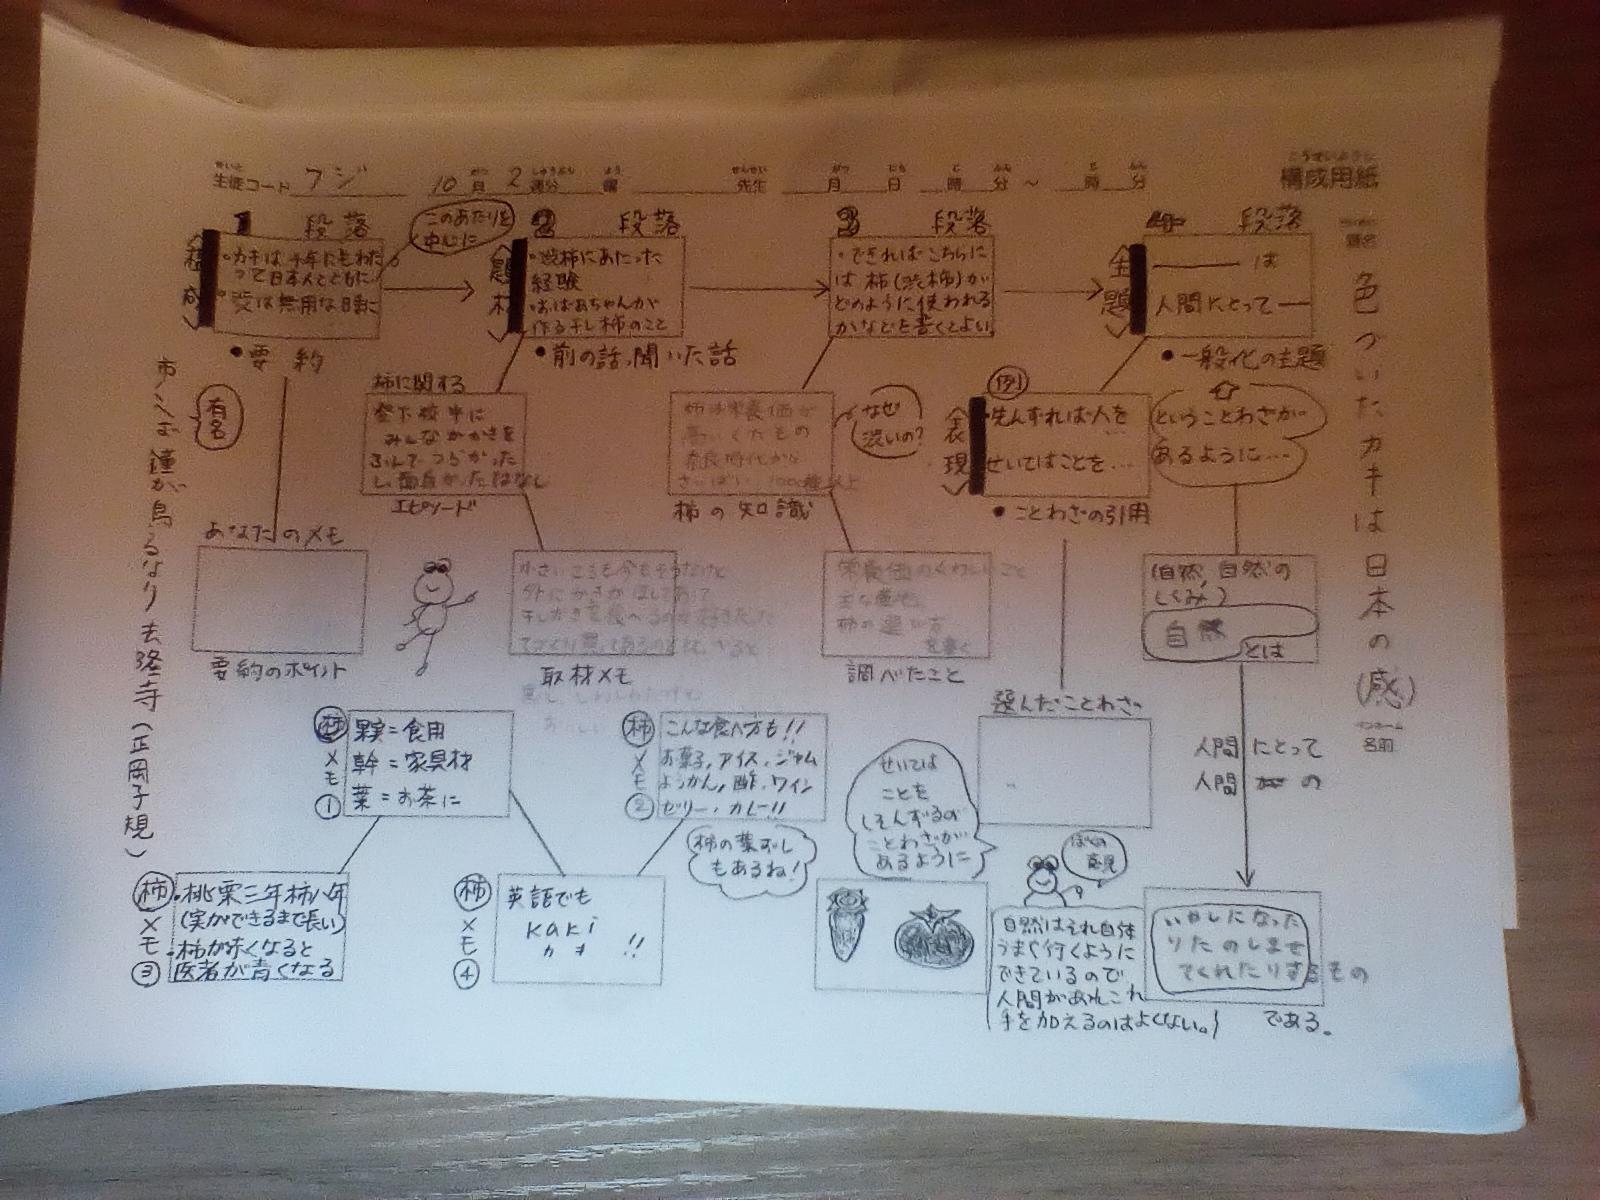 こうせいようし
構成用紙
生徒コード フジ 10月 2週分 曜 先生 月 日 時 分 ~ 時 分
題名
色づいたカキは日本の(感)
名前
1 段落
このあたりを
中心に
構成
・カキは千年にもわた
って日本人とともに
・渋は無用な日時に
●要約
2 段落
題材
・渋柿にあたった
経験
・おばあちゃんが
作る干し柿のこと
●前の話、聞いた話
3 段落
・できればこちらに
は柿(渋柿)が
どのように使われる
かなどを書くとよい。
4 段落
主題
――は
人間にとって―
●一般化の主題
有名
鐘が鳴るなり法隆寺(正岡子規)
柿に関する
登下校中に
みんながかきを
ふんでつらかった
し、面白かったはなし
エピソード
柿は栄養価が
高いくだもの
奈良時代から
さいばい 1000種以上
柿の知識
なぜ
渋いの?
例
表現
・先んずれば人を
…
せいてはことを…
●ことわざの引用
ということわざが
あるように…
あなたのメモ
要約のポイント
小さいころも今もそうだけど
外にかきがほしてあって
干しがきを食べるのが好きだった
取材メモ
栄養価のくわしいこと
主な産地
柿の選び方
を書く
調べたこと
選んだことわざ
(自然、自然の
しくみ)
自然
とは
人間にとって
人間 の
柿メモ①
果実=食用
幹=家具材
葉=お茶に
柿メモ②
こんな食べ方も!!
お菓子、アイス・ジャム
ようかん、酢・ワイン
ゼリー・カレー!!
柿の葉ずし
もあるね!
せいては
ことを
しそんずるの
ことわざが
あるように
柿メモ③
・桃栗三年柿八年
(実ができるまで長い)
・柿が赤くなると
医者が青くなる
柿メモ④
英語でも
kaki
カキ !!
ぼくの
意見
自然はそれ自体
うまく行くように
できているので
人間があれこれ
手を加えるのはよくない。
いやしになった
りたのしませ
てくれたりするもの
である。